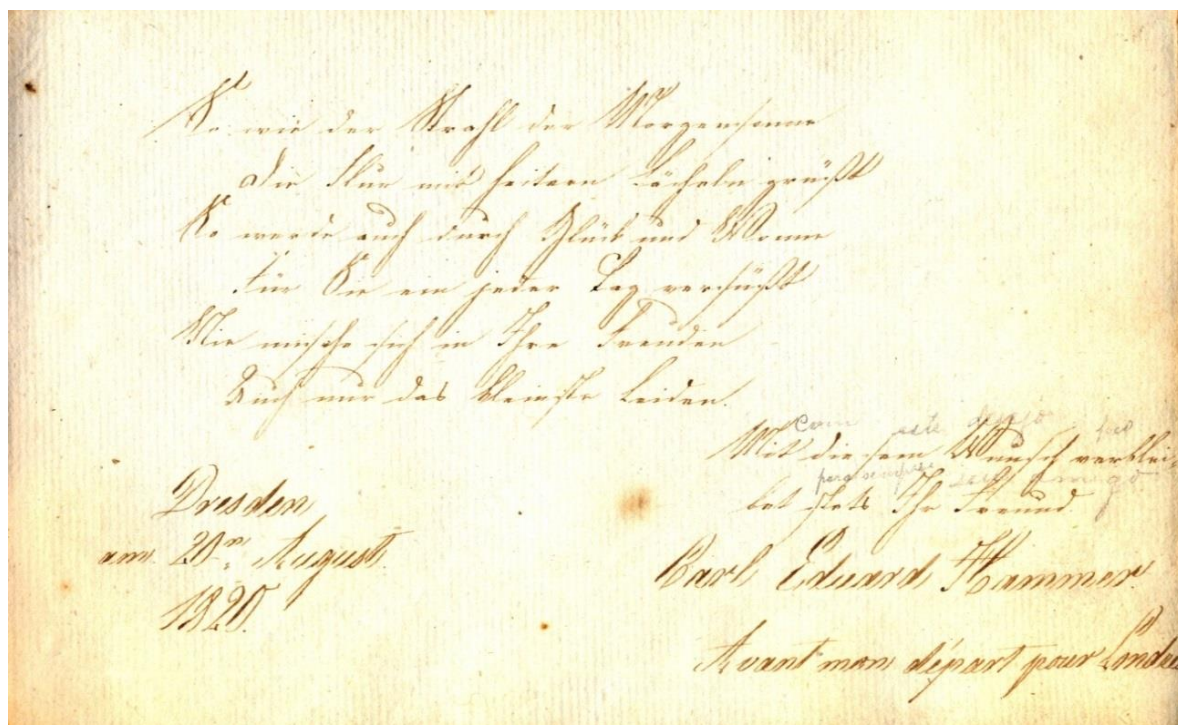 So wie der Strahl der Morgensonne
Die Flur mit heitern Lächeln grüßt
So werde auch durch Glück und Wonne
Für Sie ein jeder Tag versüßt
Nie mische sich in Ihre Freuden
Auch nur das kleinste Leiden.
Com este desejo
Mit diesem Wunsch verblei-
para sempre seu amigo
bet stets Ihr Freund
Dresden
am 20n August.
1820.
Carl Eduard Hammer.
Avant mon départ pour